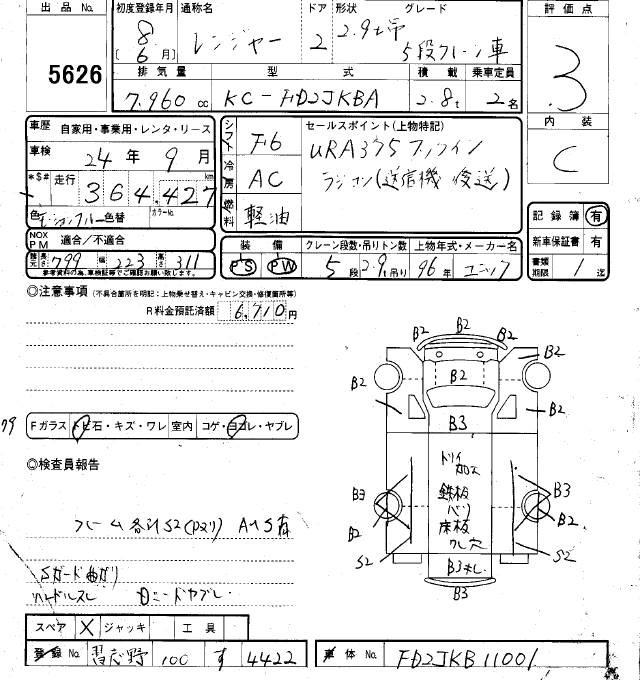 出品No. 初度登録年月 通称名 ドア 形状 グレード 評価点
5626 8年 [6月] レンジャー 2 2.9t吊 5段クレーン車 3
排気量 型式 積載 乗車定員
7.960cc KC-FD2JKBA 2.8t 2名
内装 C
車歴 自家用・事業用・レンタ・リース
車検 24年9月
*$# 走行 364,427km
色 色替 カラーNo.
NOX PM 適合/不適合
長さ 799 幅 223 高さ 311
参考資料の為、車検証等でご確認お願い致します。
シフト F6
冷房 AC
燃料 軽油
セールスポイント(上物特記)
URA375 フックイン
ラジコン(送信機後送)
装備 クレーン段数・吊りトン数 上物年式・メーカー名
PS PW 5段 2.9t吊り 96年 ユニック
記録簿 有
新車保証書 有
書類期限 / 迄
◎注意事項 (不具合箇所を明記:上物乗せ替え・キャビン交換・修復箇所等)
R料金預託済額 6,710円
Fガラス トビ石・キズ・ワレ 室内 コゲ・ヨゴレ・ヤブレ
◎検査員報告
フレーム各所S2
Sガード曲がり
ハンドルスレ
スペア X ジャッキ 工具
登録No. 習志野 100 す 4422
車体No. FD2JKB11001
B2 B2 B2
B2
B2
B2
B2
B3
B3 B3
B2 B2
S2 S2
鉄板
床板
穴
B3
B3